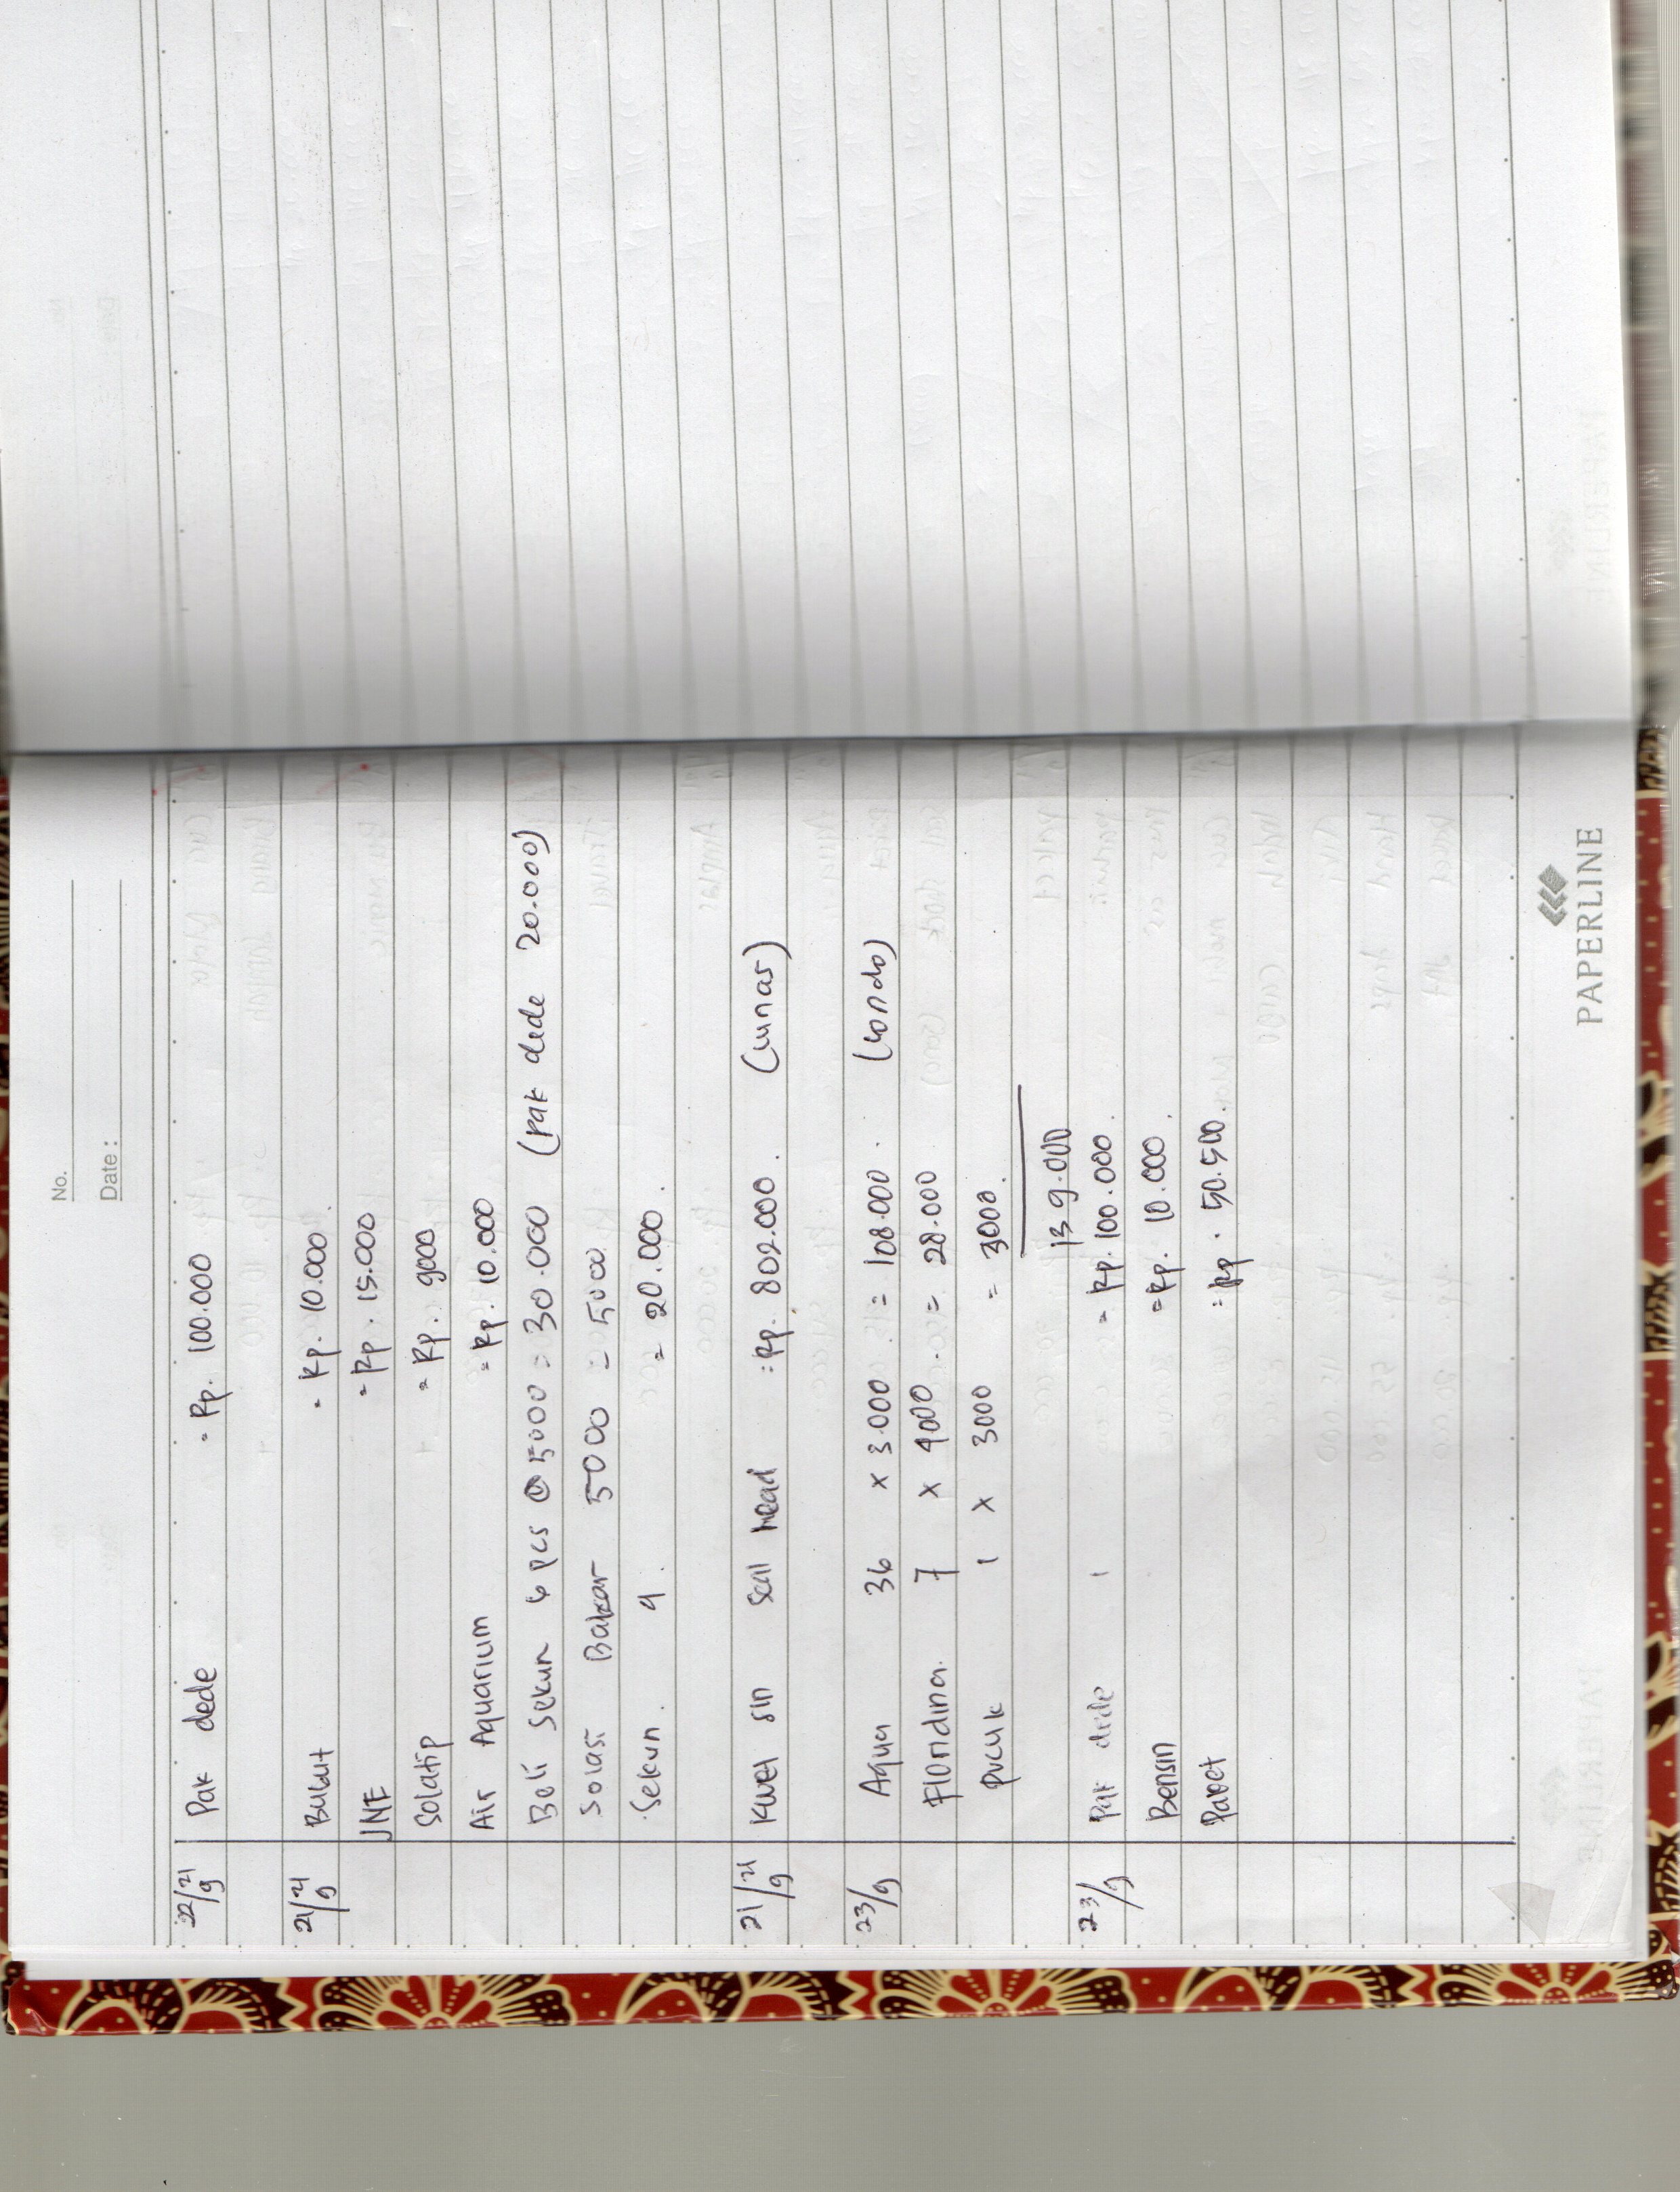 No.
Date :
22/9/21 Pak dede = Rp. 100.000
21/9/21 Bubut = Rp. 10.000
JNE = Rp. 15.000
Solatip = Rp. 9000
Air Aquarium = Rp. 10.000
Beli Sekun 6 pcs @ 5000 = 30.000 (Pak dede 20.000)
Solasi Bakar 5000 = 5000
Sekun. 4. = 20.000.
21/9/21 sin seal head : Rp. 802.000. (Lunas)
23/9 Aqua 36 x 3.000 = 108.000. (Londo)
Floridina. 7 x 4000. = 28.000
Pucuk 1 x 3000 = 3000.
139.000
23/9 Pak dede = Rp. 100.000.
Bensin = Rp. 10.000.
= Rp. 50.500.
PAPERLINE